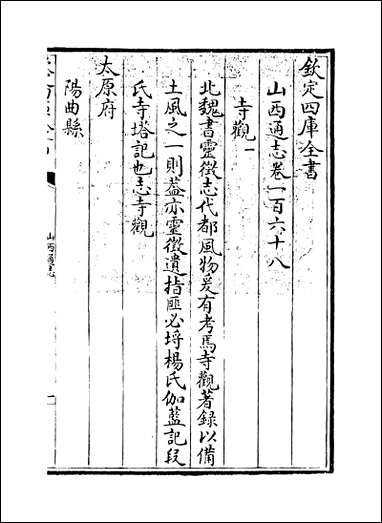 欽定四庫全書
山西通志卷一百六十八
寺觀一
北魏書靈徴志代都風物爰有考焉寺觀著録以備
土風之一則葢亦靈徴遺指匪必埒楊氏伽藍記段
氏寺塔記也志寺觀
太原府
陽曲縣
山西通志